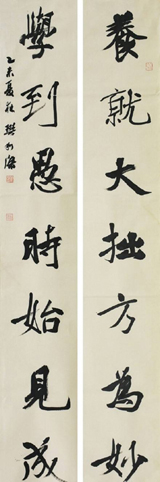 養就大拙方為妙
學到愚時始見成
乙未夏於